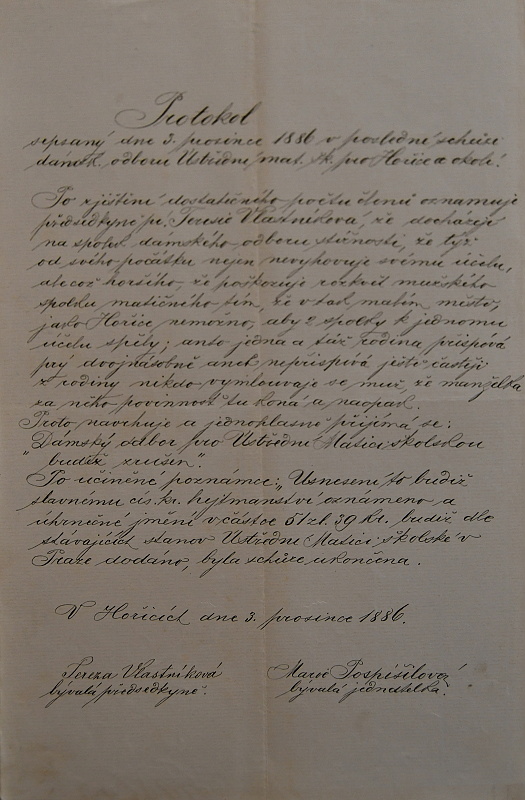 Protokol
sepsaný dne 3. prosince 1886 v poslední schůzi
dámsk. odboru Ústřední mat. šk. pro Hořice a okolí.
Po zjištění dostatečného počtu členů oznamuje
předsedkyně pí. Terezie Vlastníková, že docházejí
na spolek dámského odboru stížnosti, že týž
od svého počátku nejen nevyhovuje svému účelu,
ale což horšího, že poškozuje rozkvět mužského
spolku matičného tím, že v tak malém městě,
jako Hořice, nemožno, aby 2 spolky k jednomu
účelu spěly; anto jedna a táž rodina přispívá
prý dvojnásobně aneb nepřispívá ještě častěji
z rodiny nikdo vymlouvaje se muž, že manželka
za něho povinnost tu koná a naopak.
Proto navrhuje a jednohlasně přijímá se:
„Dámský odbor pro Ústřední Matici školskou
budiž zrušen“.
Po učiněné poznámce: „Usnesení to budiž
slavnému cís. kr. hejtmanství oznámeno a
úhrnečné jmění v částce 51 zl. 39 kr. budiž dle
stávajících stanov Ústřední Matici školské v
Praze dodáno, byla schůze ukončena.
V Hořicích dne 3. prosince 1886.
Tereza Vlastníková
bývalá předsedkyně.
Marie Pospíšilová
bývalá jednatelka.